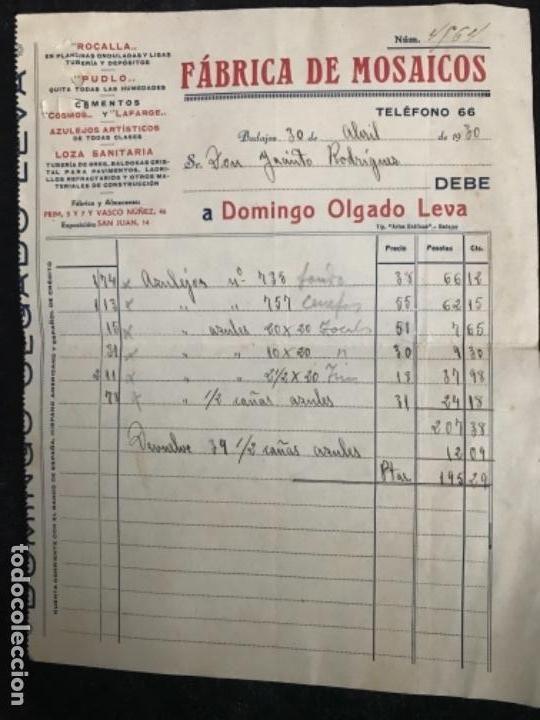 "ROCALLA"
EN PLANCHAS ONDULADAS Y LISAS
TUBERÍA Y DEPÓSITOS
"PUDLO"
QUITA TODAS LAS HUMEDADES
CEMENTOS
"COSMOS" Y "LAFARGE"
AZULEJOS ARTÍSTICOS
DE TODAS CLASES
LOZA SANITARIA
TUBERÍA DE GRES, BALDOSAS CRISTAL PARA PAVIMENTOS, LADRILLOS REFRACTARIOS Y OTROS MATERIALES DE CONSTRUCCIÓN
Fábrica y Almacenes:
PRIM, 5 Y 7 Y VASCO NÚÑEZ, 46
Exposición: SAN JUAN, 14
Núm.
FÁBRICA DE MOSAICOS
TELÉFONO 66
Badajoz 30 de Abril de 1930
Sr. Don Jacinto Rodríguez
DEBE
a Domingo Olgado Leva
Tip. "Artes Gráficas".- Badajoz
Precio Pesetas Cts.
174 x Azulejos nº 738 fondo 38 66 12
113 x " " 757 55 62 15
15 x " azules 20 x 20 51 7 65
31 x " " 10 x 20 " 30 9 30
211 x " " 2 1/2 x 20 18 37 98
78 x " 1/2 cañas azules 31 24 18
207 38
Devuelve 39 1/2 cañas azules 12 09
Ptas. 195 29
CUENTA CORRIENTE CON EL BANCO DE ESPAÑA, HISPANO AMERICANO Y ESPAÑOL DE CRÉDITO
DOMINGO OLGADO LEVA
todocoleccion